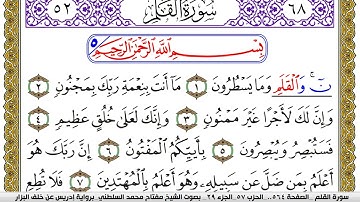 ٥٢ سُورَةُ القَلَمِ ٦٨
بِسْمِ اللَّهِ الرَّحْمَٰنِ الرَّحِيمِ
نٓ وَالْقَلَمِ وَمَا يَسْطُرُونَ ١ مَا أَنتَ بِنِعْمَةِ رَبِّكَ بِمَجْنُونٍ ٢
وَإِنَّ لَكَ لَأَجْرًا غَيْرَ مَمْنُونٍ ٣ وَإِنَّكَ لَعَلَىٰ خُلُقٍ عَظِيمٍ ٤
فَسَتُبْصِرُ وَيُبْصِرُونَ ٥ بِأَييِّكُمُ الْمَفْتُونُ ٦ إِنَّ رَبَّكَ هُوَ
أَعْلَمُ بِمَن ضَلَّ عَن سَبِيلِهِ وَهُوَ أَعْلَمُ بِالْمُهْتَدِينَ ٧ فَلَا تُطِعِ
سورة القلم . الصفحة ٥٦٤ . الحزب ٥٧ . الجزء ٢٩ . بصوت الشيخ مفتاح محمد السلطني . برواية إدريس عن خلف البزار